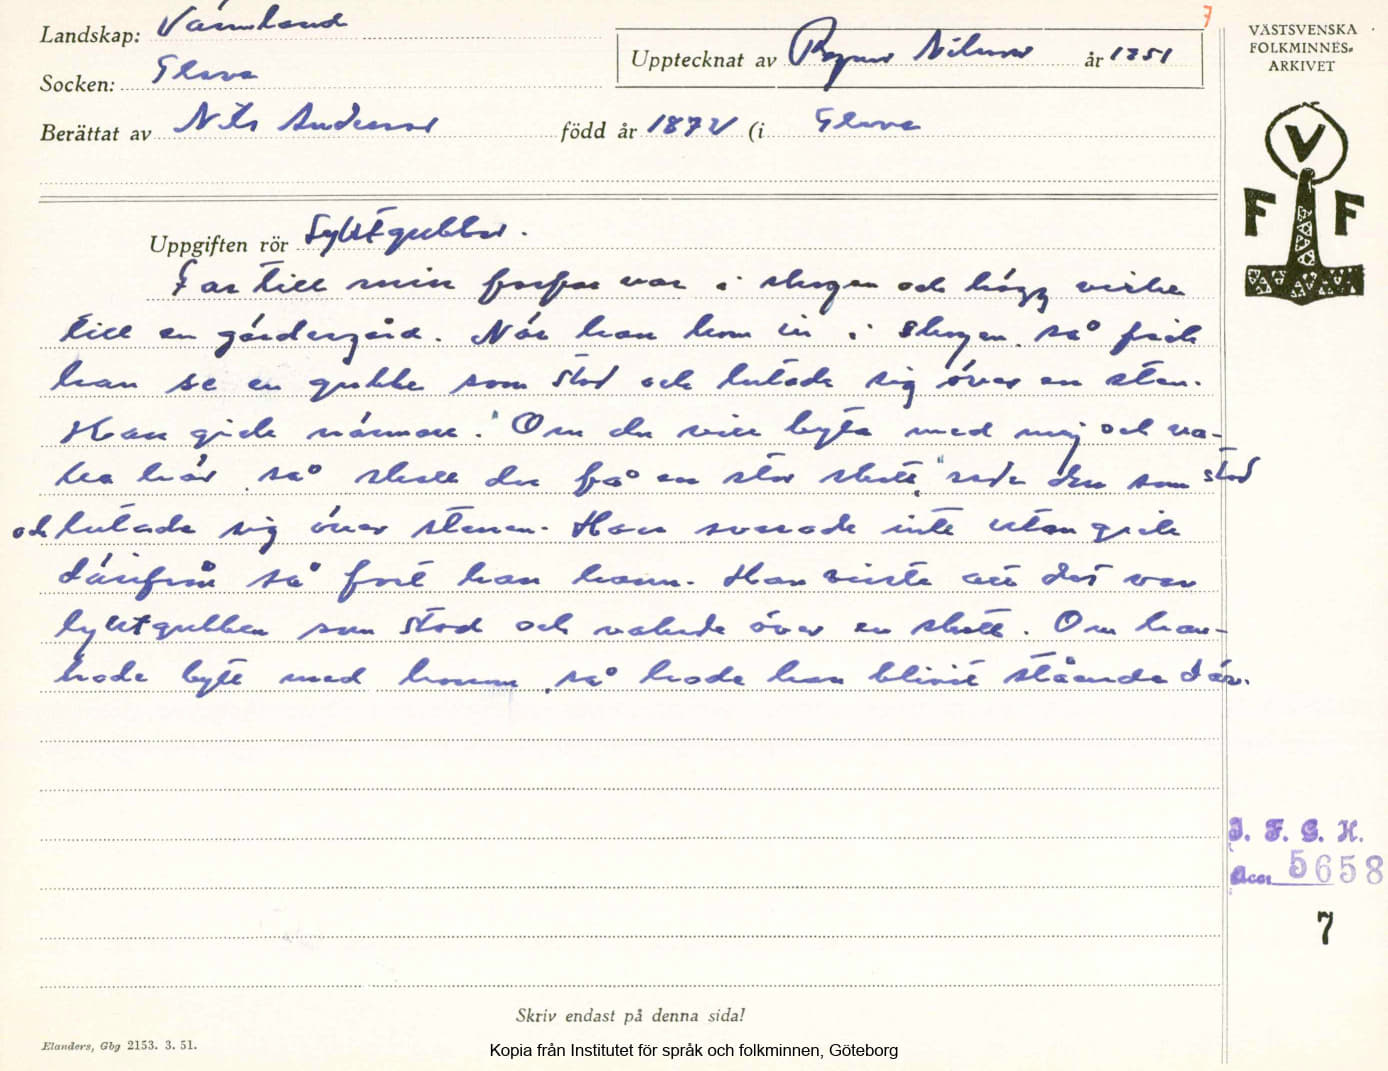 7
Landskap: Värmland
Upptecknat av Ragnar Nilsson år 1951
Socken: Glava
Berättat av Nils Anderson född år 1872 (i Glava
VÄSTSVENSKA
FOLKMINNES-
ARKIVET
V
F F
Uppgiften rör Lyktgubbar.
Far till min farfar var i skogen och högg virke
till en gärdesgård. När han kom in i skogen så fick
han se en gubbe som stod och lutade sig över en sten.
Han gick närmare. "Om du vill byta med mej och va-
ka här så skall du få en stor skatt," sade den som stod
och lutade sig över stenen. Han svarade inte utan gick
därifrån så fort han kunde. Han visste att det var
lyktgubben som stod och vakade över en skatt. Om han
hade bytt med honom, så hade han blivit stående där.
I. F. G. H.
Acc. 5658
7
Skriv endast på denna sida!
Elanders, Gbg 2153. 3. 51.
Kopia från Institutet för språk och folkminnen, Göteborg